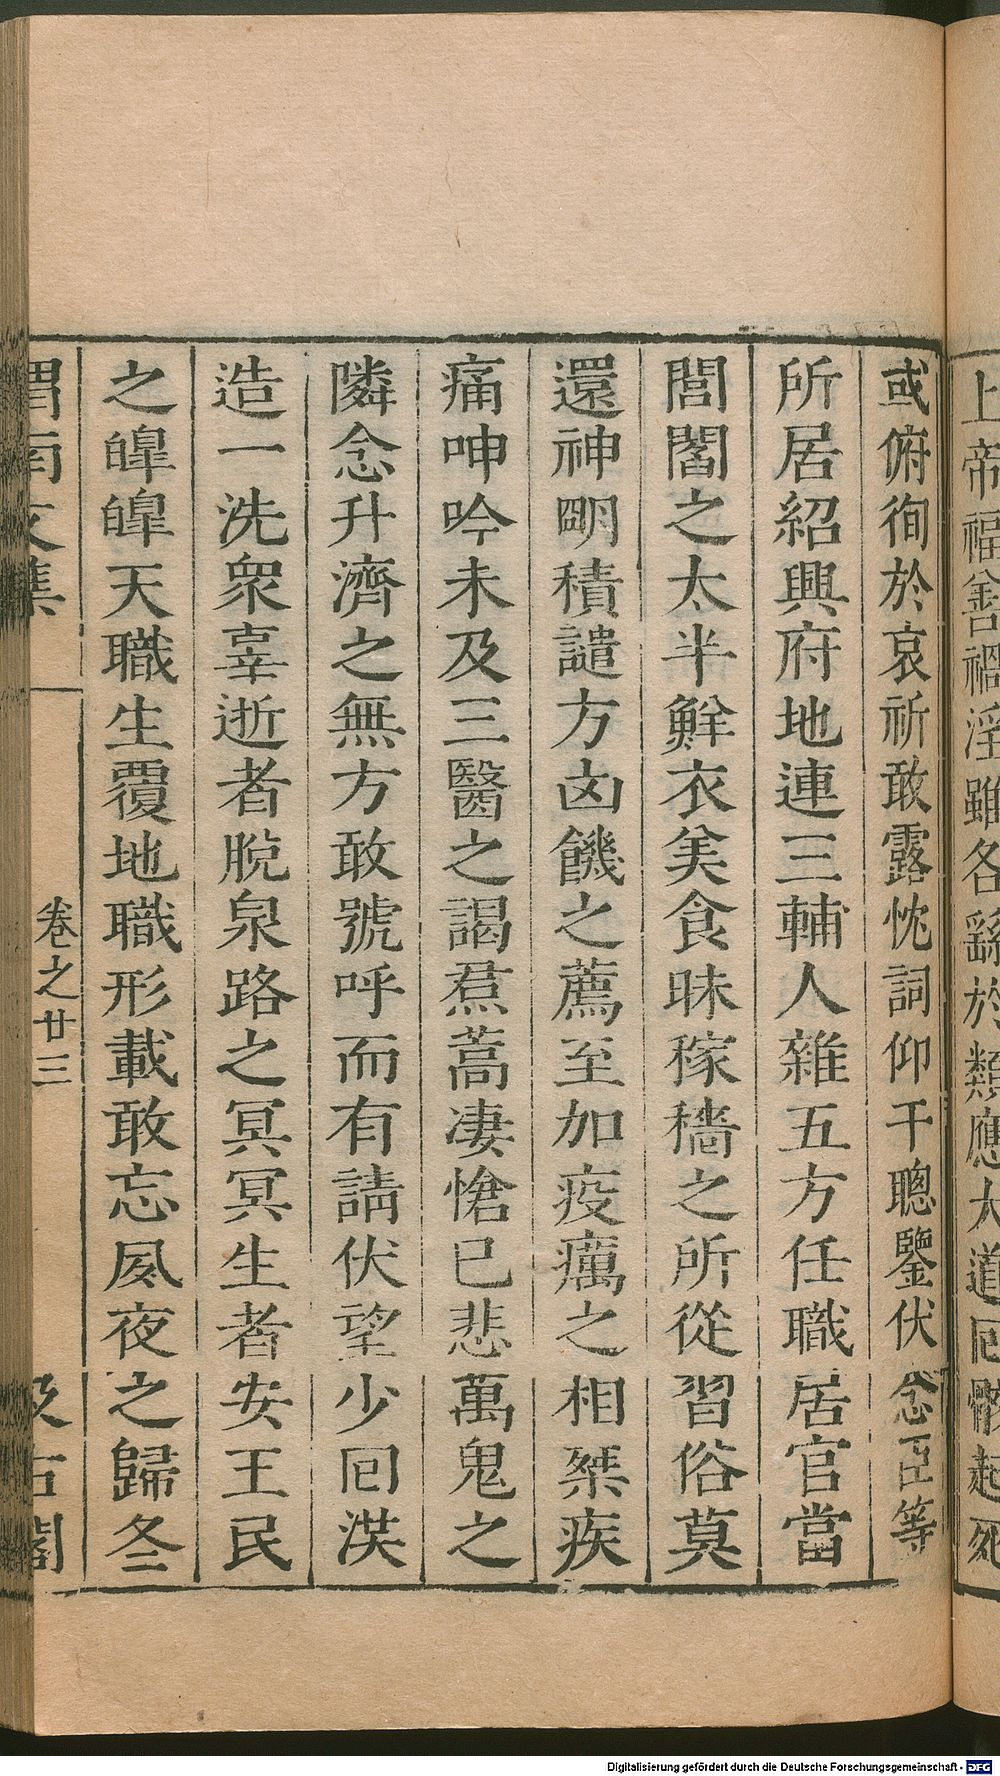 上帝福善禍淫雖各繇於類應大道囘骸起死
或俯徇於哀祈敢露忱詞仰干聰鑒伏念臣等
所居紹興府地連三輔人雜五方任職居官當
閭閻之太半鮮衣美食昧稼穡之所從習俗莫
還神明積譴方凶饑之薦至加疫癘之相桀疾
痛呻吟未及三醫之謁焄蒿凄愴已悲萬鬼之
隣念升濟之無方敢號呼而有請伏望少囘渶
造一洗衆辜逝者脫泉路之冥冥生者安王民
之皥皥天職生覆地職形載敢忘夙夜之歸冬
渭南文集
卷之廿三
汲古閣
Digitalisierung gefördert durch die Deutsche Forschungsgemeinschaft - DFG